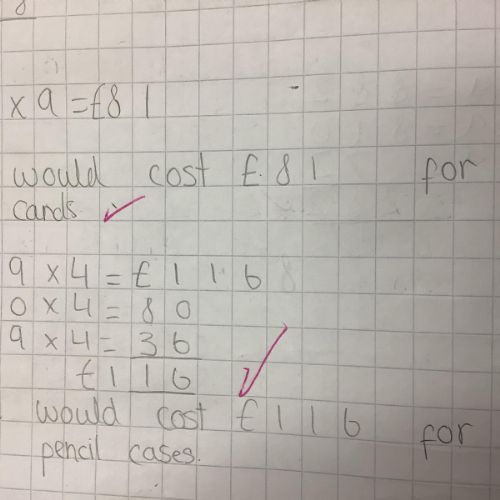 8
x 9 = £81
would cost £.81 for
cards.
9 x 4 = £116
0 x 4 = 80
9 x 4 = 36
£116
would cost £116 for
pencil cases.